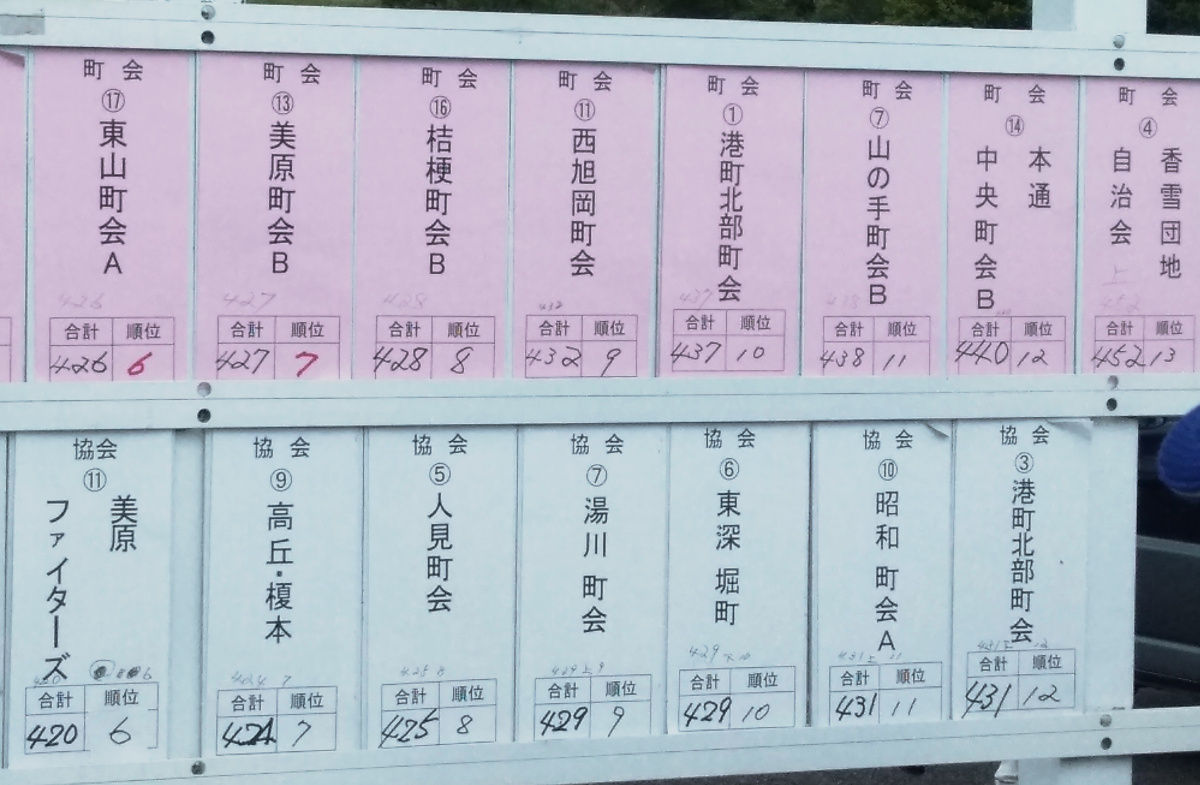 町会
⑰
東山町会A
426
合計 順位
426 6
町会
⑬
美原町会B
427
合計 順位
427 7
町会
⑯
桔梗町会B
428
合計 順位
428 8
町会
⑪
西旭岡町会
432
合計 順位
432 9
町会
①
港町北部町会
437
合計 順位
437 10
町会
⑦
山の手町会B
438
合計 順位
438 11
町会
⑭
本通
中央町会B
合計 順位
440 12
町会
④
香雪団地
自治会
上
452
合計 順位
452 13
協会
⑪
美原
ファイターズ
6
合計 順位
420 6
協会
⑨
高丘・榎本
424 7
合計 順位
424 7
協会
⑤
人見町会
425 8
合計 順位
425 8
協会
⑦
湯川町会
429 上 9
合計 順位
429 9
協会
⑥
東深堀町
429 下 10
合計 順位
429 10
協会
⑩
昭和町会A
431 上 11
合計 順位
431 11
協会
③
港町北部町会
431 下 12
合計 順位
431 12